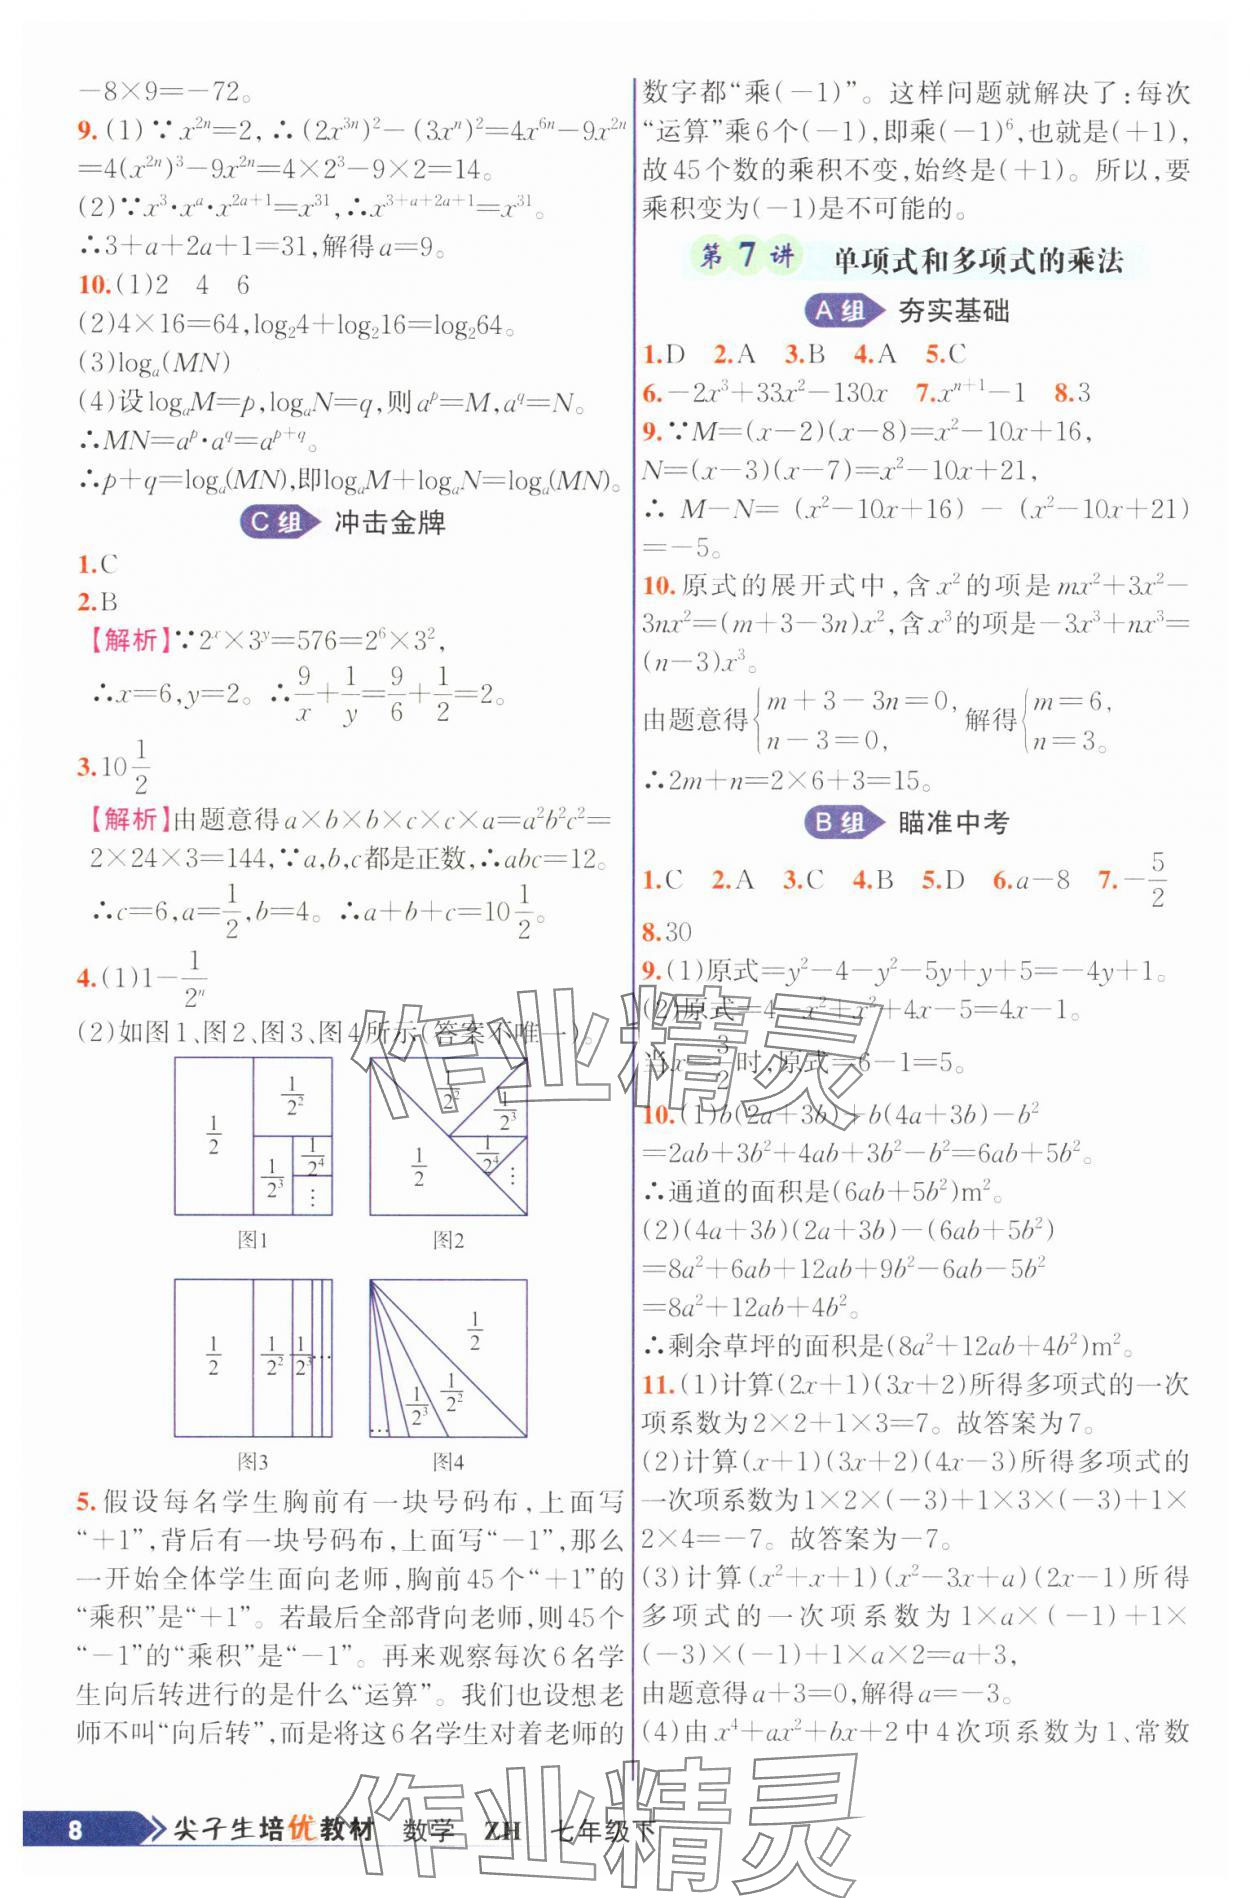 -8×9=-72。
9.(1)∵x²ⁿ=2,∴(2x³ⁿ)²-(3xⁿ)²=4x⁶ⁿ-9x²ⁿ
=4(x²ⁿ)³-9x²ⁿ=4×2³-9×2=14。
(2)∵x³·xᵃ·x²ᵃ⁺¹=x³¹,∴x³⁺ᵃ⁺²ᵃ⁺¹=x³¹。
∴3+a+2a+1=31,解得a=9。
10.(1)2 4 6
(2)4×16=64,log₂4+log₂16=log₂64。
(3)logₐ(MN)
(4)设logₐM=p,logₐN=q,则a^p=M,a^q=N。
∴MN=a^p·a^q=a^(p+q)。
∴p+q=logₐ(MN),即logₐM+logₐN=logₐ(MN)。
C组 冲击金牌
1.C
2.B
【解析】∵2^x×3^y=576=2⁶×3²,
∴x=6,y=2。∴9/x+1/y=9/6+1/2=2。
3.10 1/2
【解析】由题意得a×b×b×c×c×a=a²b²c²=
2×24×3=144,∵a,b,c都是正数,∴abc=12。
∴c=6,a=1/2,b=4。∴a+b+c=10 1/2。
4.(1)1-1/2ⁿ
(2)如图1、图2、图3、图4所示(答案不唯一)。
1/2 1/2² 1/2³ 1/2⁴ ⋮
图1
1/2 1/2² 1/2³ 1/2⁴ ⋮
图2
1/2 1/2² 1/2³ …
图3
1/2 1/2² 1/2³ …
图4
5.假设每名学生胸前有一块号码布,上面写
“+1”,背后有一块号码布,上面写“-1”,那么
一开始全体学生面向老师,胸前45个“+1”的
“乘积”是“+1”。若最后全部背向老师,则45个
“-1”的“乘积”是“-1”。再来观察每次6名学
生向后转进行的是什么“运算”。我们也设想老
师不叫“向后转”,而是将这6名学生对着老师的
数字都“乘(-1)”。这样问题就解决了:每次
“运算”乘6个(-1),即乘(-1)⁶,也就是(+1),
故45个数的乘积不变,始终是(+1)。所以,要
乘积变为(-1)是不可能的。
第7讲 单项式和多项式的乘法
A组 夯实基础
1.D 2.A 3.B 4.A 5.C
6.-2x³+33x²-130x 7.xⁿ⁺¹-1 8.3
9.∵M=(x-2)(x-8)=x²-10x+16,
N=(x-3)(x-7)=x²-10x+21,
∴ M-N=(x²-10x+16)-(x²-10x+21)
=-5。
10.原式的展开式中,含x²的项是mx²+3x²-
3nx²=(m+3-3n)x²,含x³的项是-3x³+nx³=
(n-3)x³。
由题意得{m+3-3n=0, n-3=0, 解得{m=6, n=3。
∴2m+n=2×6+3=15。
B组 瞄准中考
1.C 2.A 3.C 4.B 5.D 6.a-8 7.-5/2
8.30
9.(1)原式=y²-4-y²-5y+y+5=-4y+1。
(2)原式=4-x²+x²+4x-5=4x-1。
当x=3/2时,原式=6-1=5。
10.(1)b(2a+3b)+b(4a+3b)-b²
=2ab+3b²+4ab+3b²-b²=6ab+5b²。
∴通道的面积是(6ab+5b²)m²。
(2)(4a+3b)(2a+3b)-(6ab+5b²)
=8a²+6ab+12ab+9b²-6ab-5b²
=8a²+12ab+4b²。
∴剩余草坪的面积是(8a²+12ab+4b²)m²。
11.(1)计算(2x+1)(3x+2)所得多项式的一次
项系数为2×2+1×3=7。故答案为7。
(2)计算(x+1)(3x+2)(4x-3)所得多项式的
一次项系数为1×2×(-3)+1×3×(-3)+1×
2×4=-7。故答案为-7。
(3)计算(x²+x+1)(x²-3x+a)(2x-1)所得
多项式的一次项系数为1×a×(-1)+1×
(-3)×(-1)+1×a×2=a+3,
由题意得a+3=0,解得a=-3。
(4)由x⁴+ax²+bx+2中4次项系数为1、常数
作业精灵
作业精灵
8 尖子生培优教材 数学 ZH 七年级下